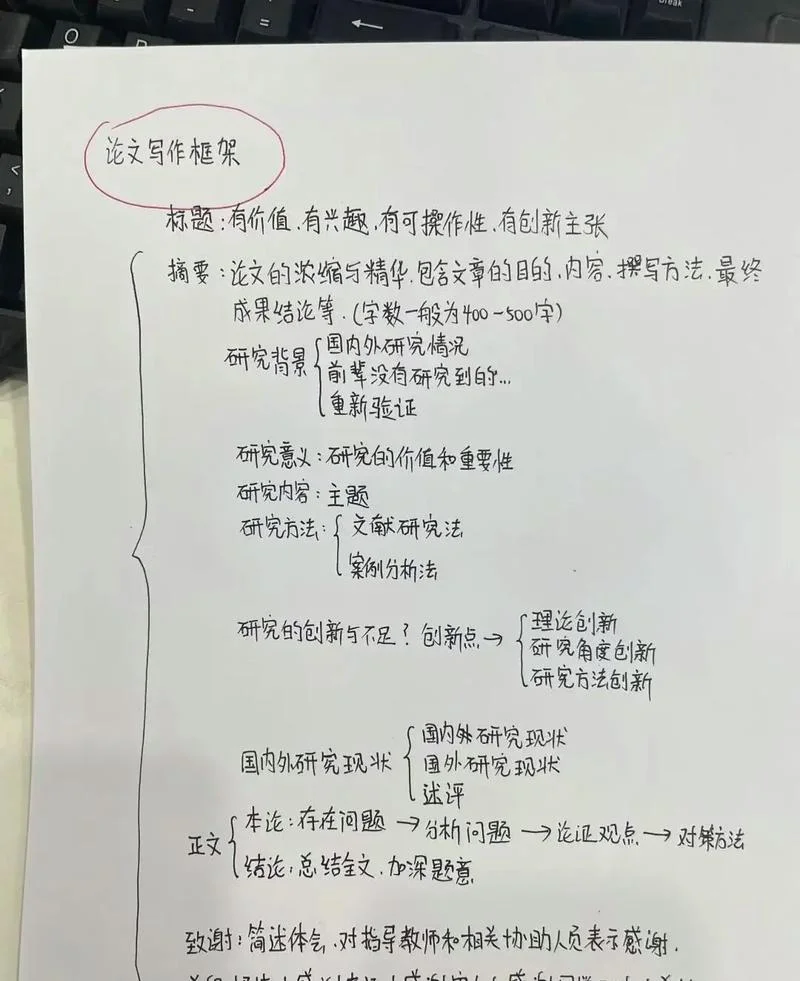 论文写作框架
标题:有价值、有兴趣、有可操作性、有创新主张
摘要:论文的浓缩与精华.包含文章的目的、内容、撰写方法、最终
成果结论等.(字数一般为400~500字)
研究背景
国内外研究情况
前辈没有研究到的...
重新验证
研究意义:研究的价值和重要性
研究内容:主题
研究方法:
文献研究法
案例分析法
研究的创新与不足?创新点→
理论创新
研究角度创新
研究方法创新
国内外研究现状
国内外研究现状
国外研究现状
述评
正文
本论:存在问题→分析问题→论证观点→对策方法
结论:总结全文、加深题意
致谢:简述体会、对指导教师和相关协助人员表示感谢.
break